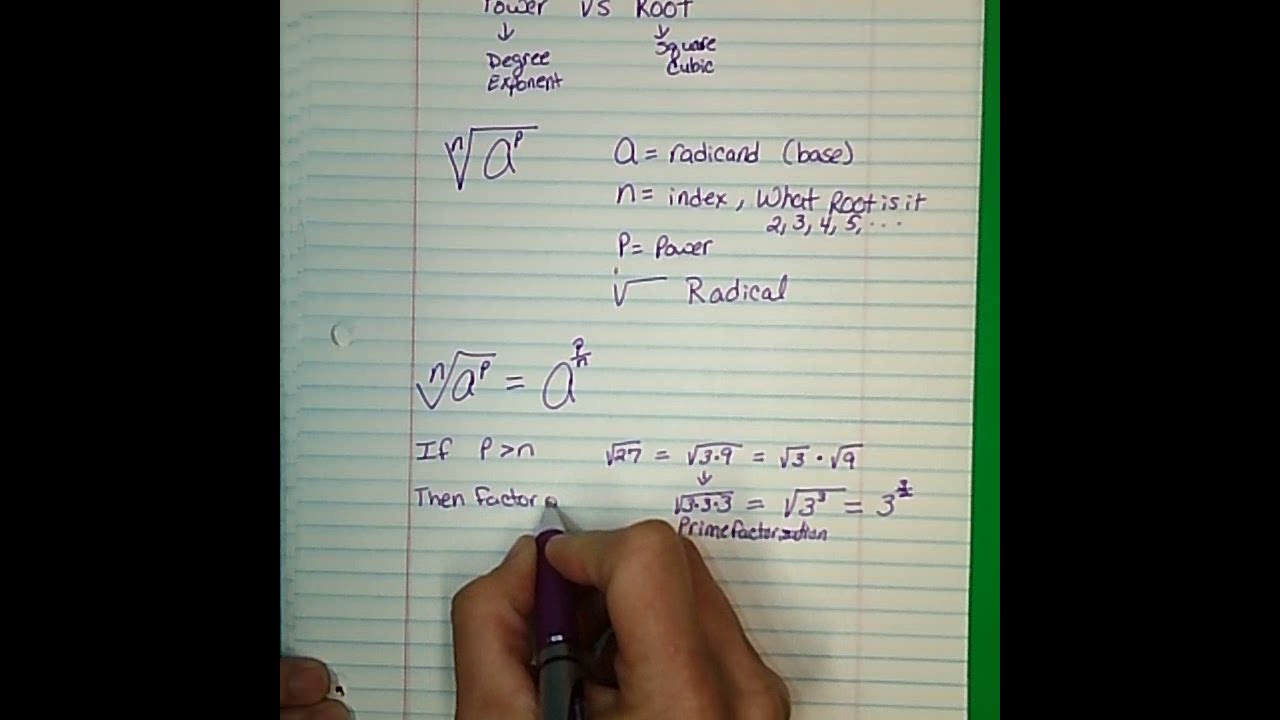 Power VS Root
↓ ↓
Degree Square
Exponent Cubic
ⁿ√aᵖ
a = radicand (base)
n = index, What Root is it
2, 3, 4, 5, ...
P = Power
√ Radical
ⁿ√aᵖ = a^(p/n)
If P > n √27 = √3·9 = √3 · √9
↓
Then factor √3·3·3 = √3³ = 3^(3/2)
Prime factorization